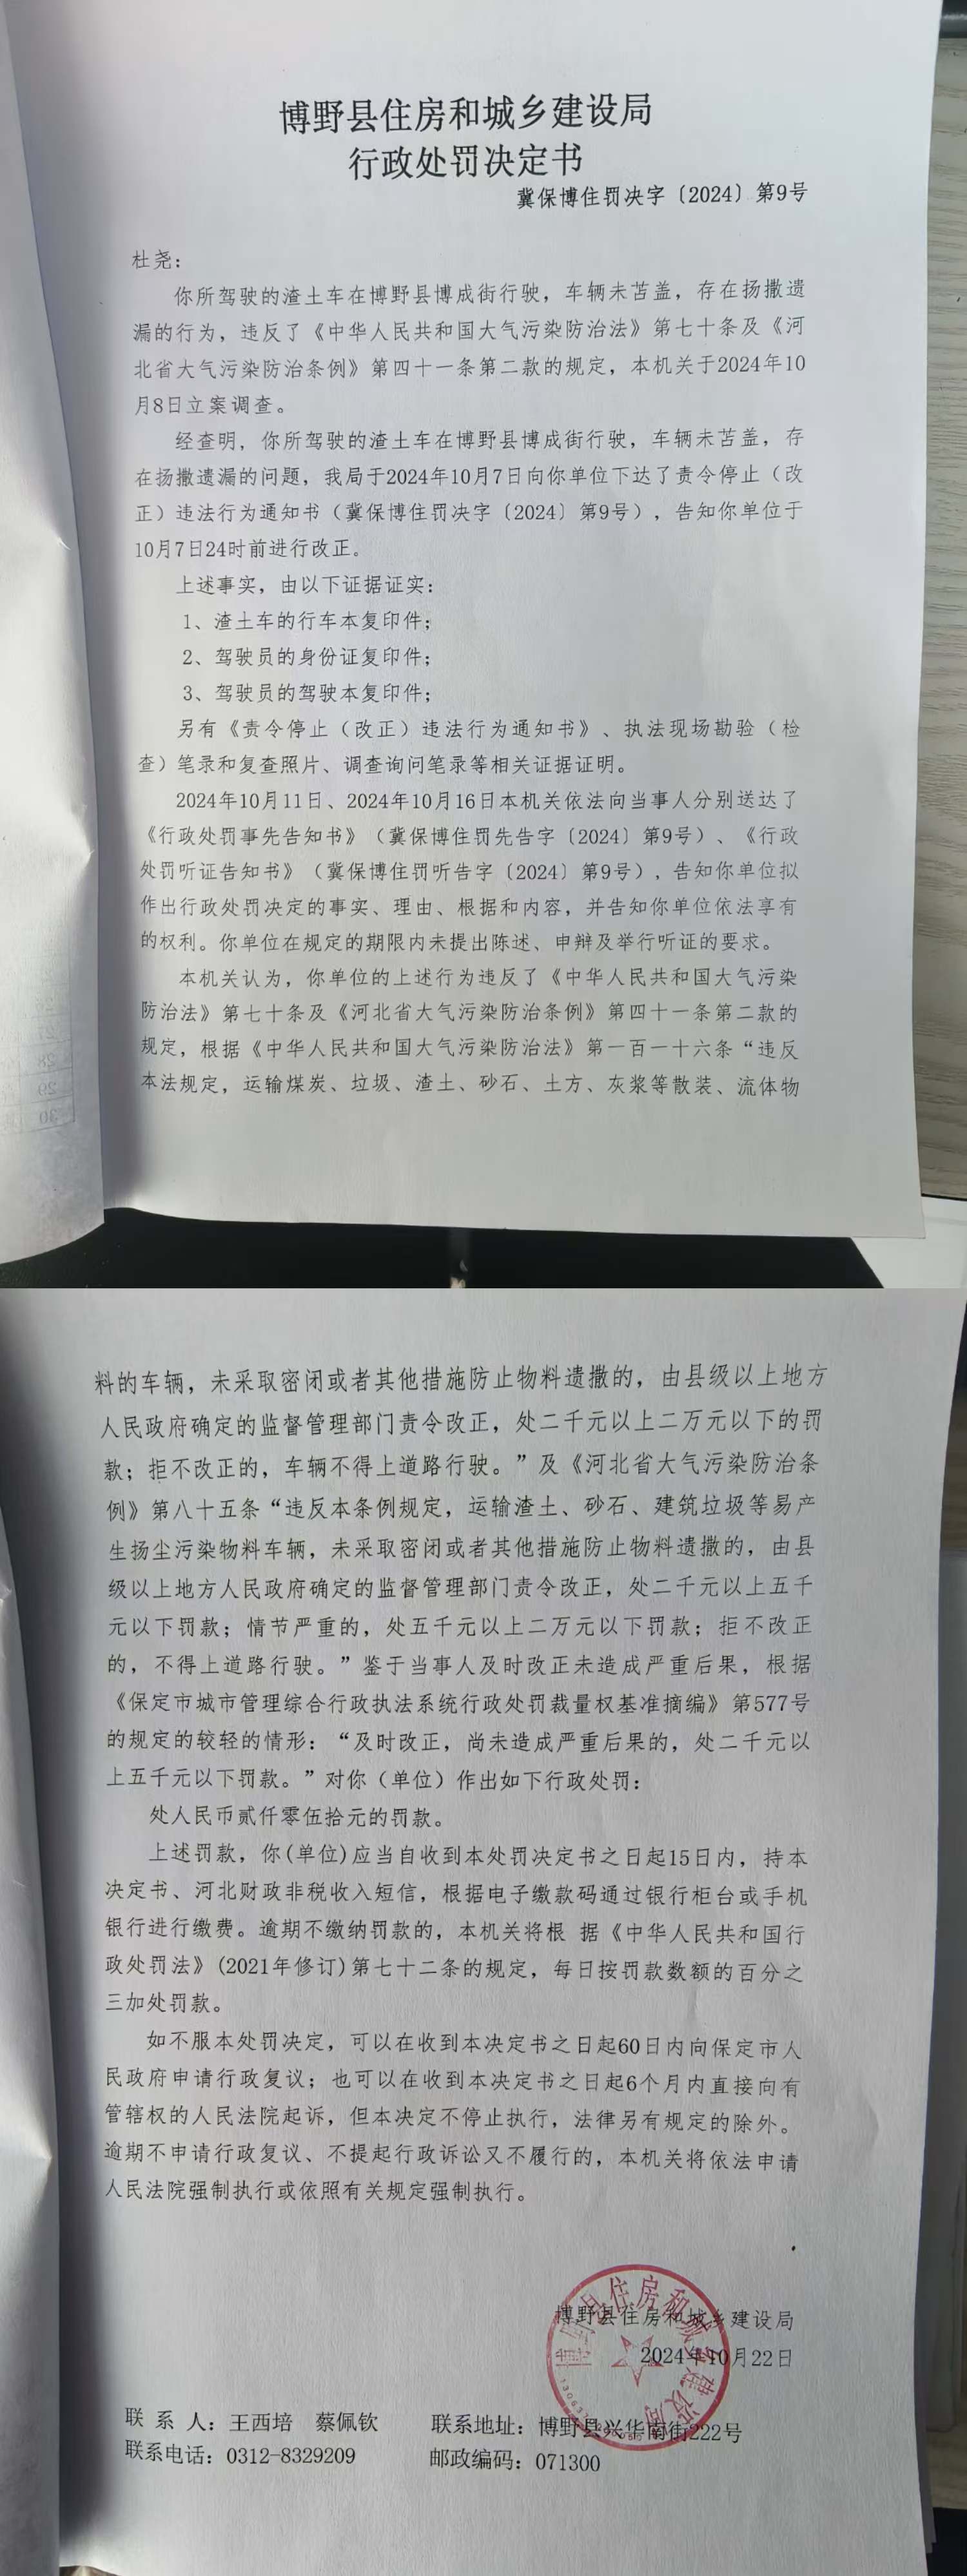 博野县住房和城乡建设局
行政处罚决定书
冀保博住罚决字〔2024〕第9号
杜尧：
你所驾驶的渣土车在博野县博成街行驶，车辆未苫盖，存在扬撒遗
漏的行为，违反了《中华人民共和国大气污染防治法》第七十条及《河
北省大气污染防治条例》第四十一条第二款的规定，本机关于2024年10
月8日立案调查。
经查明，你所驾驶的渣土车在博野县博成街行驶，车辆未苫盖，存
在扬撒遗漏的问题，我局于2024年10月7日向你单位下达了责令停止（改
正）违法行为通知书（冀保博住罚决字〔2024〕第9号），告知你单位于
10月7日24时前进行改正。
上述事实，由以下证据证实：
1、渣土车的行车本复印件；
2、驾驶员的身份证复印件；
3、驾驶员的驾驶本复印件；
另有《责令停止（改正）违法行为通知书》、执法现场勘验（检
查）笔录和复查照片、调查询问笔录等相关证据证明。
2024年10月11日、2024年10月16日本机关依法向当事人分别送达了
《行政处罚事先告知书》（冀保博住罚先告字〔2024〕第9号）、《行政
处罚听证告知书》（冀保博住罚听告字〔2024〕第9号），告知你单位拟
作出行政处罚决定的事实、理由、根据和内容，并告知你单位依法享有
的权利。你单位在规定的期限内未提出陈述、申辩及举行听证的要求。
本机关认为，你单位的上述行为违反了《中华人民共和国大气污染
防治法》第七十条及《河北省大气污染防治条例》第四十一条第二款的
规定，根据《中华人民共和国大气污染防治法》第一百一十六条“违反
本法规定，运输煤炭、垃圾、渣土、砂石、土方、灰浆等散装、流体物
料的车辆，未采取密闭或者其他措施防止物料遗撒的，由县级以上地方
人民政府确定的监督管理部门责令改正，处二千元以上二万元以下的罚
款；拒不改正的，车辆不得上道路行驶。”及《河北省大气污染防治条
例》第八十五条“违反本条例规定，运输渣土、砂石、建筑垃圾等易产
生扬尘污染物料车辆，未采取密闭或者其他措施防止物料遗撒的，由县
级以上地方人民政府确定的监督管理部门责令改正，处二千元以上五千
元以下罚款；情节严重的，处五千元以上二万元以下罚款；拒不改正
的，不得上道路行驶。”鉴于当事人及时改正未造成严重后果，根据
《保定市城市管理综合行政执法系统行政处罚裁量权基准摘编》第577号
的规定的较轻的情形：“及时改正，尚未造成严重后果的，处二千元以
上五千元以下罚款。”对你（单位）作出如下行政处罚：
处人民币贰仟零伍拾元的罚款。
上述罚款，你(单位)应当自收到本处罚决定书之日起15日内，持本
决定书、河北财政非税收入短信，根据电子缴款码通过银行柜台或手机
银行进行缴费。逾期不缴纳罚款的，本机关将根 据《中华人民共和国行
政处罚法》(2021年修订)第七十二条的规定，每日按罚款数额的百分之
三加处罚款。
如不服本处罚决定，可以在收到本决定书之日起60日内向保定市人
民政府申请行政复议；也可以在收到本决定书之日起6个月内直接向有
管辖权的人民法院起诉，但本决定不停止执行，法律另有规定的除外。
逾期不申请行政复议、不提起行政诉讼又不履行的，本机关将依法申请
人民法院强制执行或依照有关规定强制执行。
博野县住房和城乡建设局
2024年10月22日
博野县住房和城乡建设局
联 系 人：王西培 蔡佩钦 联系地址：博野县兴华南街222号
联系电话：0312-8329209 邮政编码：071300
28
29
30